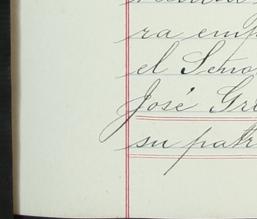 ra emp
el Seño
José Gre
su patr